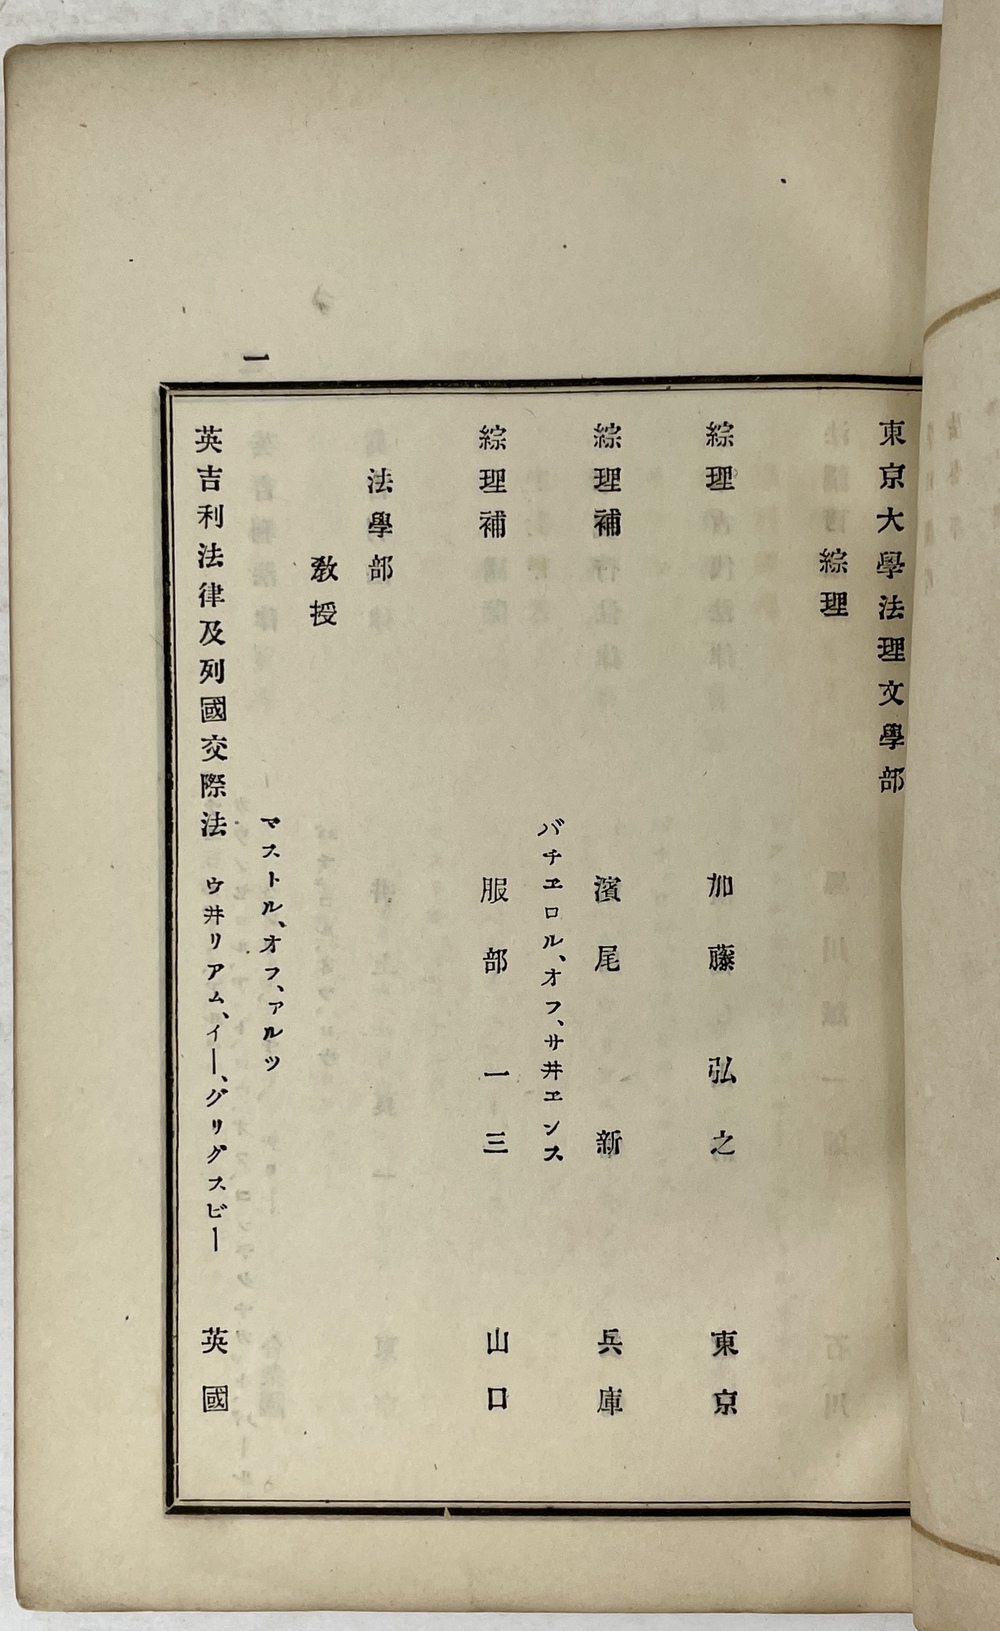 東京大學法理文學部
綜理
綜理 加藤弘之 東京
綜理補 濱尾新 兵庫
バチエロル、オフ、サ井エンス
綜理補 服部一三 山口
法學部
敎授
マストル、オフ、アルツ
英吉利法律及列國交際法 ウ井リアム、イー、グリグスビー 英國
一